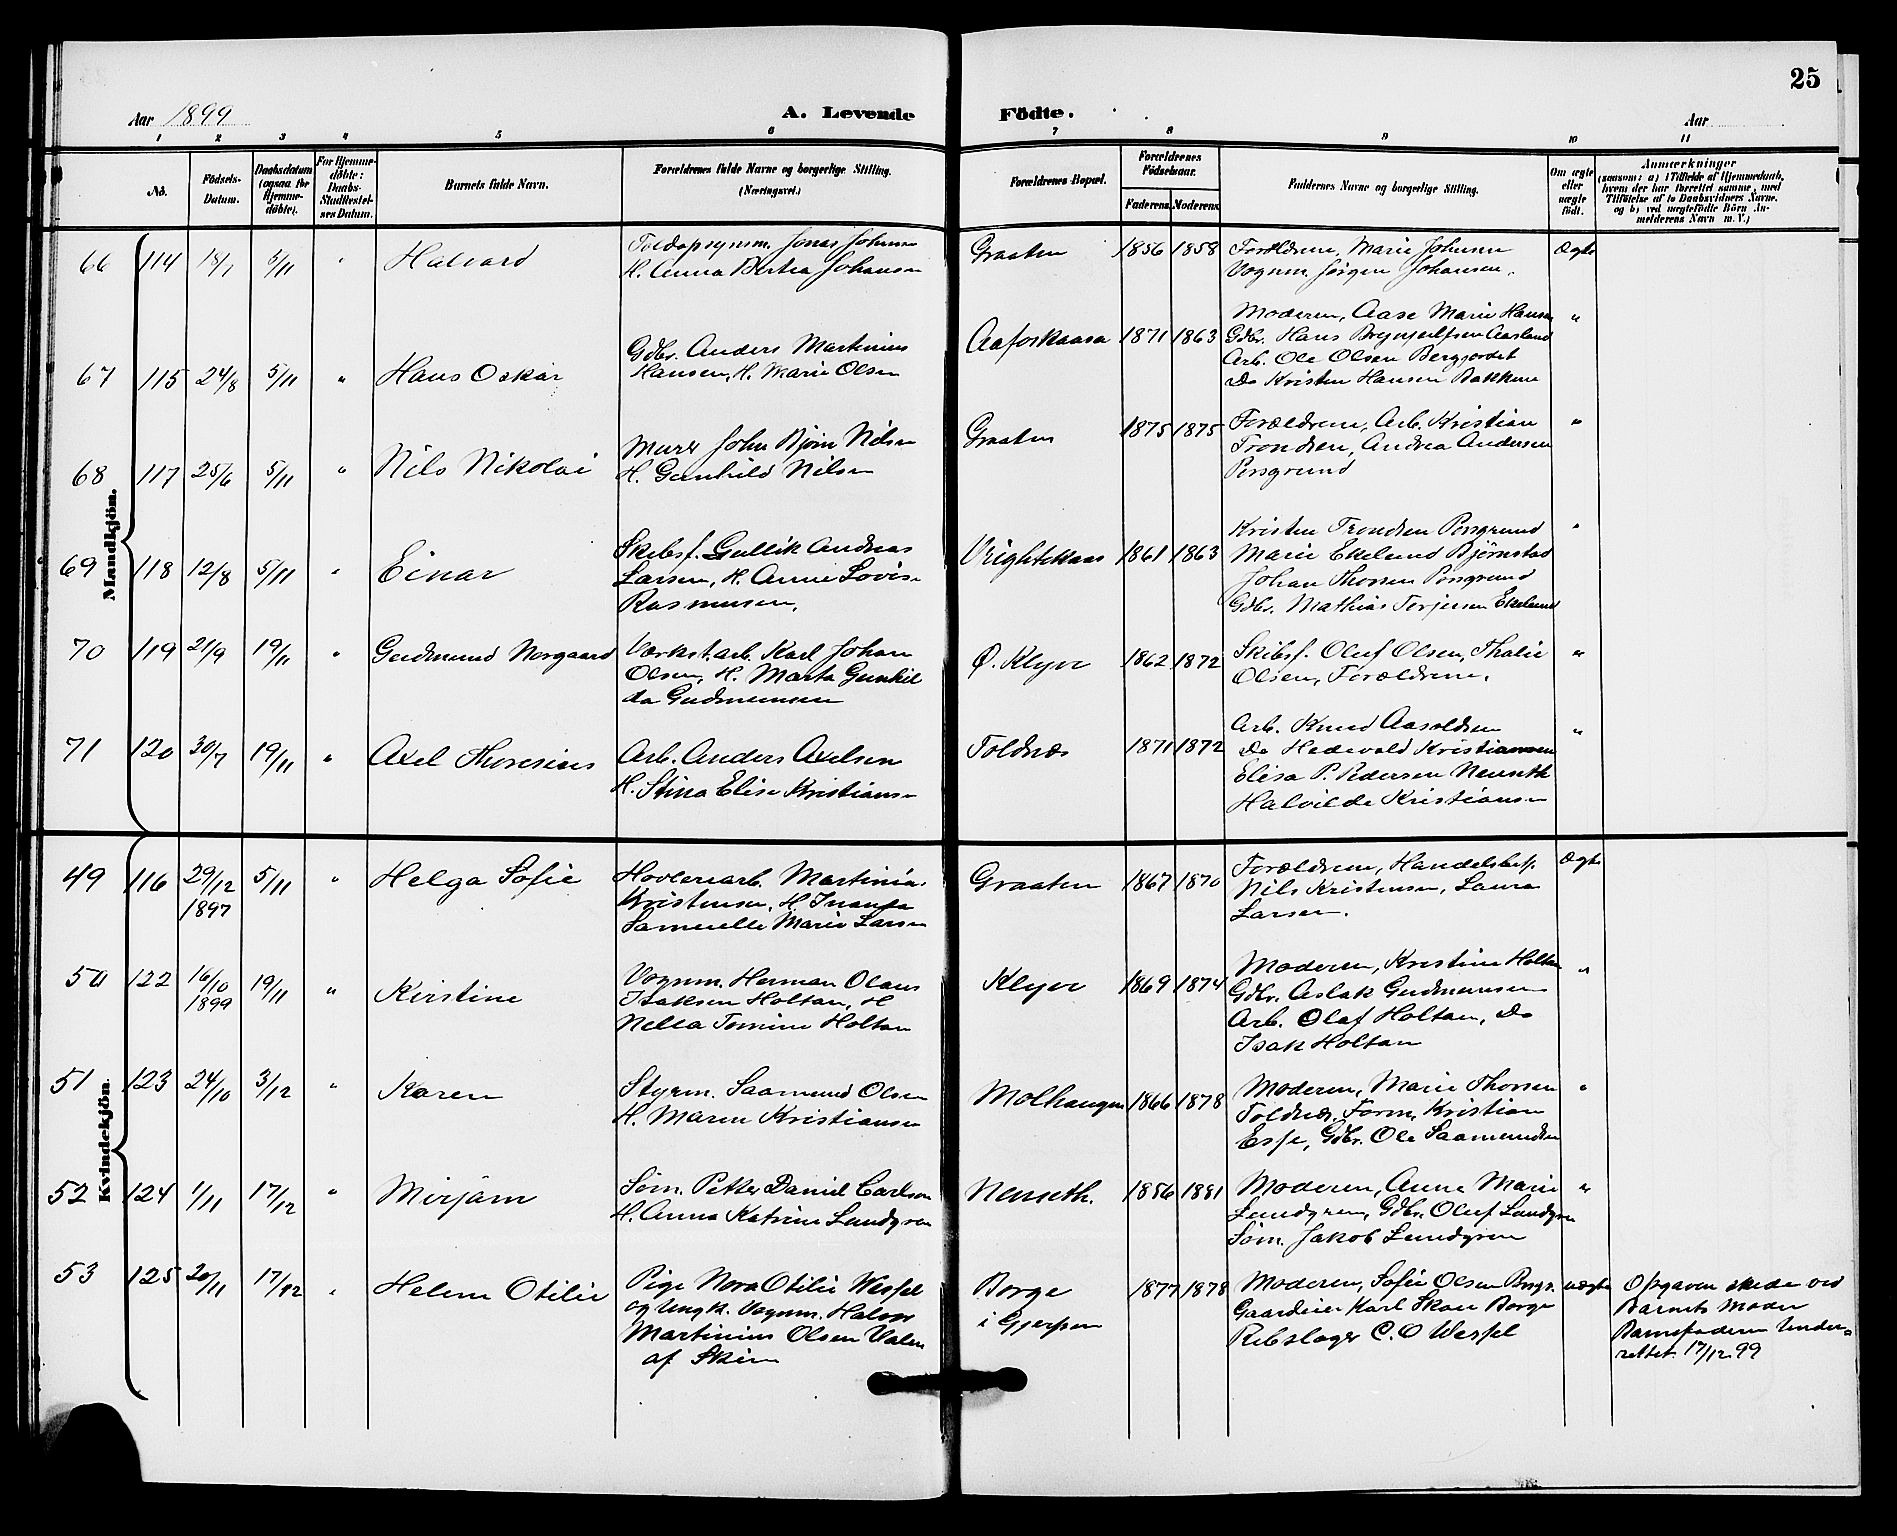 25
Aar 1899
A. Levende
Födte.
Aar
1 2 3 4 5 6 7 8 9 10 11
No.
Födsels-
Datum.
Daabsdatum
(ogsaa for
Hjemme-
döbte).
For Hjemme-
döbte:
Daabs-
Stadfæstel-
ses Datum.
Barnets fulde Navn.
Forældrenes fulde Navne og borgerlige Stilling.
(Næringsvei.)
Forældrenes Bopæl.
Forældrenes
Födselsaar.
Faderens. Moderens.
Faddernes Navne og borgerlige Stilling.
Om ægte
eller
uægte
födt.
Anmærkninger
(saasom: a) i Tilfælde af Hjemmedaab,
hvem der har forrettet samme, med
Tilföielse af to Daabsvidners Navne,
og b) ved uægtefödte Börn An-
melderens Navn m. V.)
Mandkjön.
66 114 18/1 5/11 " Halvard
Toldopsynsm. Jonas Johnsen
H. Anna Bertea Johansen
Graaten 1856 1858
Forældrene, Marie Johnsen
Vognm. Jørgen Johansen.
Ægte
67 115 24/8 5/11 " Hans Oskar
Gdbr. Anders Martinius
Hansen, H. Marie Olsen
Aafoskaasa 1871 1863
Moderen, Aase Marie Hansen
Gdbr. Hans Brynjulfsen Aasland
Arb. Ole Olsen Bergjordet
Do Kristen Hansen Bakkene
"
68 117 25/6 5/11 " Nils Nikolai
Murer John Bjørn Nilsen
H. Gunhild Nilsen
Graaten 1875 1875
Forældrene, Arb. Kristian
Trondsen, Andrea Andersen
Porsgrund
"
69 118 12/8 5/11 " Einar
Skibsf. Gullik Andreas
Larsen, H. Anne Lovise
Rasmussen.
Vrightskaas 1861 1863
Kristen Trondsen Porsgrund
Marie Ekelund Bjørnstad
Johan Thorsen Porsgrund
Gdbr. Mathias Torjusen Ekelund
"
70 119 21/9 19/11 " Gudmund Norgaard
Værkst.arb. Karl Johan
Olsen, H. Marta Gunhil
da Gudmunsen
Ø. Klyve 1862 1872
Skibsf. Oluf Olsen, Thalie
Olsen, Forældrene.
"
71 120 30/7 19/11 " Axel Thoresius
Arb. Anders Axelsen
H. Stina Elise Kristiansen
Toldnæs 1871 1872
Arb. Knud Aasoldsen
Do Hedevald Kristiansen
Elisa P. Pedersen Nenseth
Halvilde Kristiansen
"
Kvindekjön.
49 116 29/12 1897 5/11 " Helga Sofie
Høvleriarb. Martinias
Kristensen, H. Inanda
Samuelle Marie Larsen
Graaten 1867 1870
Forældrene, Handelsbest.
Nils Kristensen, Laura
Larsen.
Ægte
50 122 16/10 1899 19/11 " Kirstine
Vognm. Herman Olaus
Isaksen Holtan, H
Nella Tomine Holtan
Klyve 1869 1874
Moderen, Kristine Holtan
Gdbr. Aslak Gudmunsen
Arb. Olaf Holtan, Do
Isak Holtan
"
51 123 24/10 3/12 " Karen
Styrm. Saamund Olsen
H. Maren Kristiansen
Molhaugen 1866 1878
Moderen, Marie Thorsen
Toldnæs. Form. Kristian
Esse, Gdbr. Ole Saamundsen
"
52 124 1/11 17/12 " Mirjam
Søm. Petter Daniel Carlson
H. Anna Katrine Lundgren
Nenseth. 1856 1881
Moderen, Anne Marie
Lundgren, Gdbr. Oluf Lundgren
Søm. Jakob Lundgren
"
53 125 20/11 17/12 " Helene Otilie
Pige Nora Otilie Wessel
og Ungk. Vognm. Halvor
Martinius Olsen Valen
af Skien
Borge
i Gjerpen
1877 1878
Moderen, Sofie Olsen Borge.
Gaardeier Karl Skau Borge
Rebslager C. O Wessel
uægte
Opgaven skede ved
Barnets Moder
Barnefaderen Under-
rettet. 17/12 99